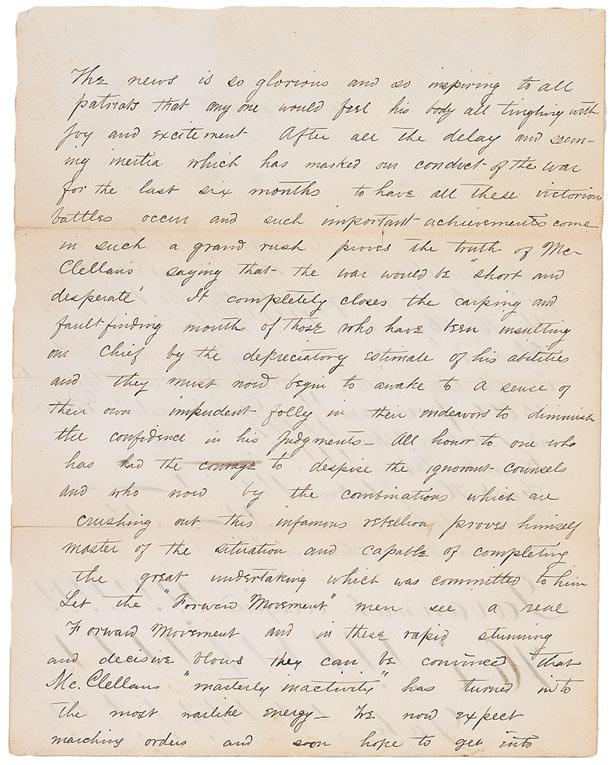 The news is so glorious and so inspiring to all
patriots that any one would feel his body all tingling with
joy and excitement After all the delay and seem-
ing inertia which has marked our conduct of the war
for the last six months to have all these victorious
battles occur and such important achievements come
in such a grand rush proves the truth of Mc-
Clellan's saying that the war would be "short and
desperate" It completely closes the carping and
faultfinding mouths of those who have been insulting
our Chief by the depreciatory estimate of his abilities
and they must now begin to awake to a sense of
their own impudent folly in their endeavors to diminish
the confidence in his judgments — All honor to one who
has had the courage to despise the ignorant counsels
and who now by the combinations which are
crushing out this infamous rebellion, proves himself
master of the situation and capable of completing
the great undertaking which was committed to him
Let the "Forward Movement" men see a real
Forward Movement and in these rapid stunning
and decisive blows they can be convinced that
Mc.Clellans "masterly inactivity" has turned into
the most warlike energy — We now expect
marching orders and soon hope to get into